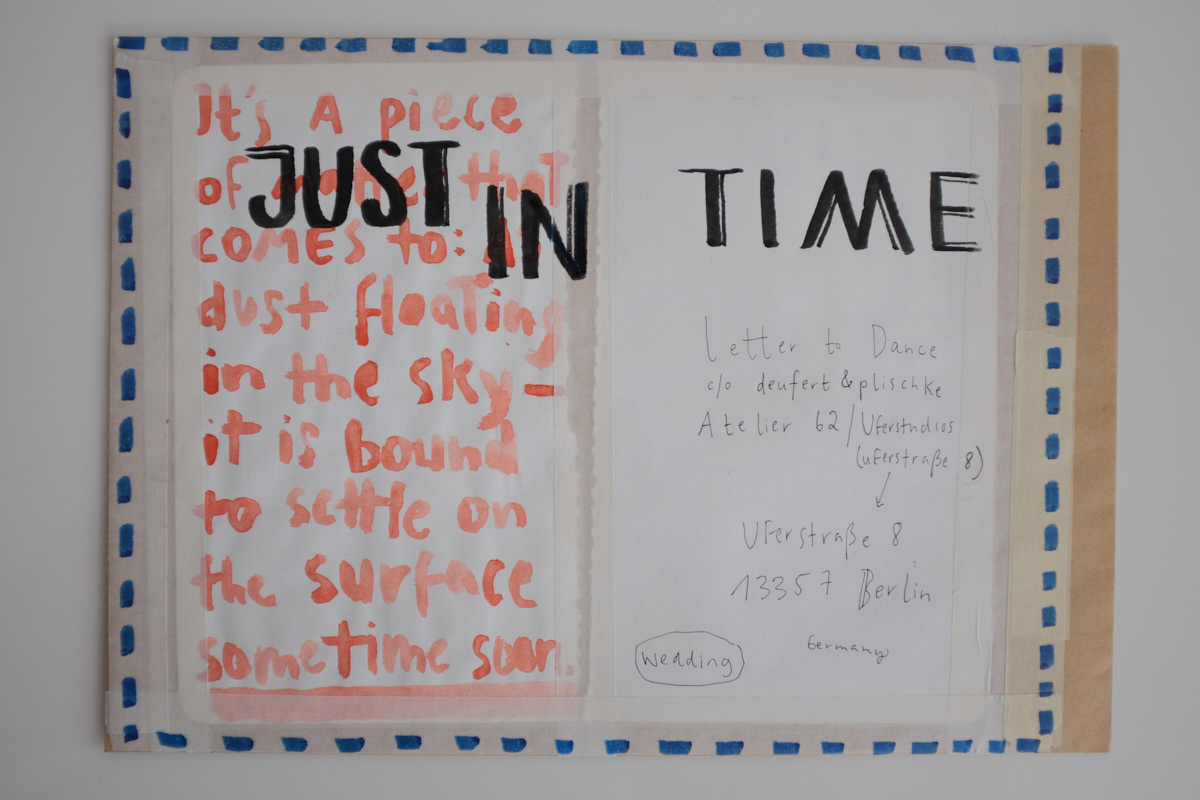 It's A piece
of that
COMES to:
dust floating
in the sky-
it is bound
to settle on
the surface
sometime soon.
JUST
IN
TIME
Letter to Dance
c/o deufert & plischke
Atelier 62 / Uferstudios
(uferstraße 8)
Uferstraße 8
13357 Berlin
Germany
Wedding